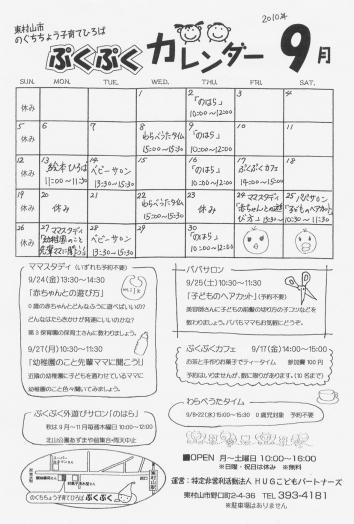 東村山市
のぐちちょう子育てひろば
ぷくぷく カレンダー 2010年 9月
SUN. MON. TUE. WED. THU. FRI. SAT.
1 2 「のはら」 10:00~12:00 3 4
休み
5 休み 6 7 8 わらべうたタイム 15:00~15:30 9 「のはら」 10:00~12:00 10 11
12 休み 13 絵本ひろば 11:00~11:30 14 ベビーサロン 13:30~15:30 15 16 「のはら」 10:00~12:00 17 ぷくぷくカフェ 14:00~15:00 18
19 休み 20 休み 21 22 わらべうたタイム 15:00~15:30 23 休み 24 ママスタディ 「赤ちゃんとの遊び方」 25 パパサロン 「子どものヘアカット」 10:30~11:30
26 休み 27 ママスタディ 「幼稚園のこと先輩ママに聞こう」 28 ベビーサロン 13:30~15:30 29 30 「のはら」 10:00~12:00
ママスタディ (いずれも予約不要)
9/24(金)13:30~14:30
「赤ちゃんとの遊び方」
0歳の赤ちゃんとどんなふうに遊べばいいの?
どんなはたらきかけが発達にいいのかな?
第3保育園の保育士さんに教わりましょう。
9/27(月)10:30~11:30
「幼稚園のこと先輩ママに聞こう!」
近隣の幼稚園に子どもを通わせているママに
幼稚園のこと色々聞いてみましょう。
ぷくぷく外遊びサロン「のはら」
秋は9月~11月毎週木曜日10:00~12:00
北山公園あずまや低集合・雨天中止
のぐちちょう子育てひろば ぷくぷく
パパサロン
9/25(土)10:30~11:30
「子どものヘアカット」(予約不要)
美容師さんに子どもの前髪の切り方のコツなどを
教わりましょう。パパもママもお気軽にどうぞ。
ぷくぷくカフェ 9/17(金)14:00~15:00
お茶と手作りお菓子でティータイム 参加費100円
予約はいりませんが、数に限りがあります。(10名まで)
わらべうたタイム
9/8・22(水)15:00~15:30 0歳児対象 予約不要
■OPEN 月~土曜日 10:00~16:00
※日曜・祝日は休み ※無料
運営:特定非営利活動法人 HUGこどもパートナーズ
東村山市野口町2-4-36 TEL 393-4181
※駐車場はありません